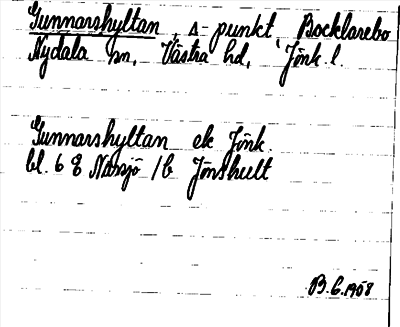 Gunnarshyltan, △-punkt Bocklarebo
Nydala sn, Västra hd, Jönk. l.
Gunnarshyltan ek Jönk.
bl. 6 E Nässjö /b Jönshult
B.E. 1958